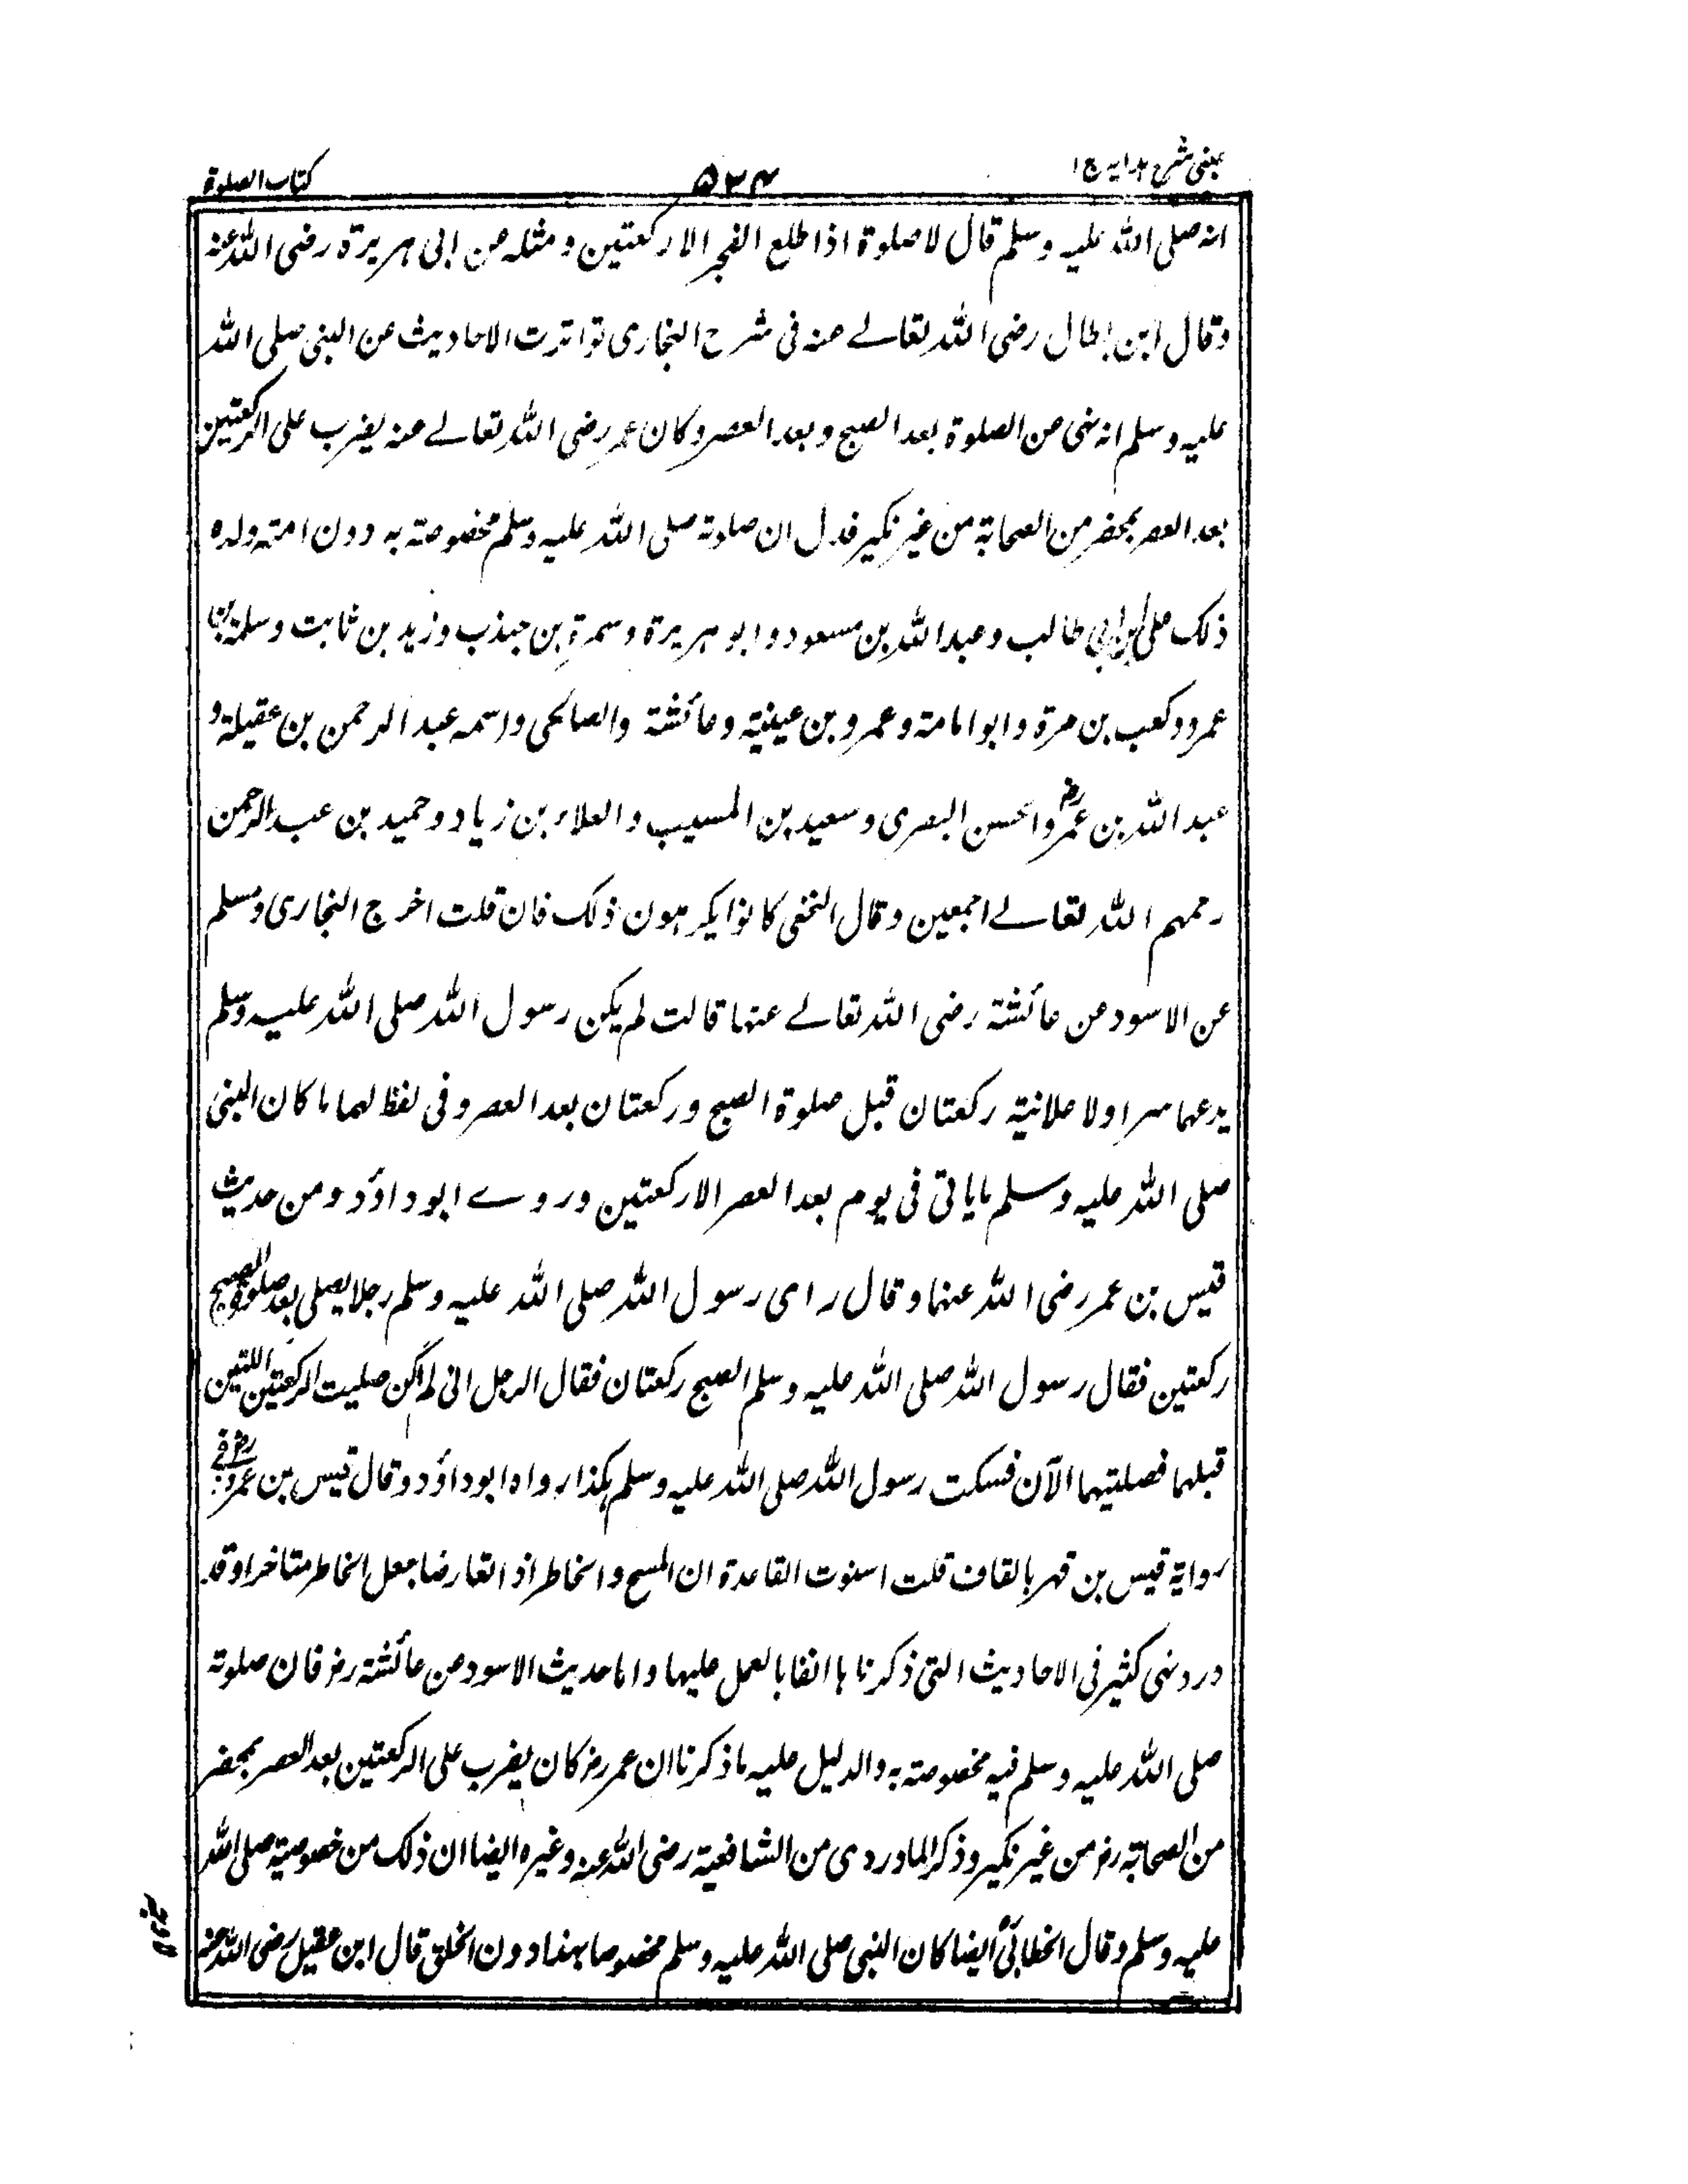 عینی شرح ہدایہ ج۱
۵۲۴
کتاب الصلوۃ
انہ صلی اللہ علیہ وسلم قال لا صلوۃ اذا طلع الفجر الا رکعتین ومثلہ عن ابی ہریرۃ رضی اللہ عنہ
وقال ابن بطال رضی اللہ تعالے عنہ فی شرح البخاری تواترت الاحادیث عن النبی صلی اللہ
علیہ وسلم انہ نہی عن الصلوۃ بعد الصبح وبعد العصر وکان عمر رضی اللہ تعالے عنہ یضرب علی الرکعتین
بعد العصر بمحضر من الصحابۃ من غیر نکیر فدل ان صلوتہ صلی اللہ علیہ وسلم مخصوصتہ بہ دون امتہ وکرہ
ذلک علی ابن ابی طالب وعبد اللہ بن مسعود وابو ہریرۃ وسمرۃ بن جندب وزید بن ثابت وسلمۃ بن
عمرو وکعب بن مرۃ وابو امامۃ وعمرو بن عینیۃ وعائشۃ والصالحی واسمہ عبد الرحمن بن عقیلۃ و
عبد اللہ بن عمر رض والحسن البصری وسعید بن المسیب والعلاء بن زیاد وحمید بن عبد الرحمن
رحمہم اللہ تعالے اجمعین وقال النخعی کانوا یکرہون ذلک فان قلت اخرج البخاری ومسلم
عن الاسود عن عائشۃ رضی اللہ تعالے عنہا قالت لم یکن رسول اللہ صلی اللہ علیہ وسلم
یدعہما سرا ولا علانیۃ رکعتان قبل صلوۃ الصبح ورکعتان بعد العصر وفی لفظ لہما ما کان النبی
صلی اللہ علیہ وسلم مایاتی فی یوم بعد العصر الا رکعتین وروے ابو داؤد ومن حدیث
قیس بن عمر رضی اللہ عنہما وقال رای رسول اللہ صلی اللہ علیہ وسلم رجلا یصلی بعد صلوۃ الصبح
رکعتین فقال رسول اللہ صلی اللہ علیہ وسلم الصبح رکعتان فقال الرجل انی لم اکن صلیت الرکعتین اللتین
قبلہما فصلیتہما الآن فسکت رسول اللہ صلی اللہ علیہ وسلم ہکذا رواہ ابو داؤد وقال قیس بن عمرو رض وفی
روایۃ قیس بن قہر بالقاف قلت استوت القاعدۃ ان المبیح والحاظر اذ اتعارضا جعل الحاظر متاخرا وقد
ورد نہی کثیر فی الاحادیث التی ذکرناہا انفا بالعمل علیہا واما حدیث الاسود عن عائشۃ رض فان صلوتہ
صلی اللہ علیہ وسلم فیہ مخصوصتہ بہ والدلیل علیہ ما ذکرنا ان عمر رض کان یضرب علی الرکعتین بعد العصر بمحضر
من الصحابۃ رض من غیر نکیر وذکر الماوردی من الشافعیۃ رضی اللہ عنہ وغیرہ ایضا ان ذلک من خصوصیۃ صلی اللہ
علیہ وسلم وقال الخطابی ایضا کان النبی صلی اللہ علیہ وسلم مخصوصا بہذا دون الخلق قال ابن عقیل رضی اللہ عنہ